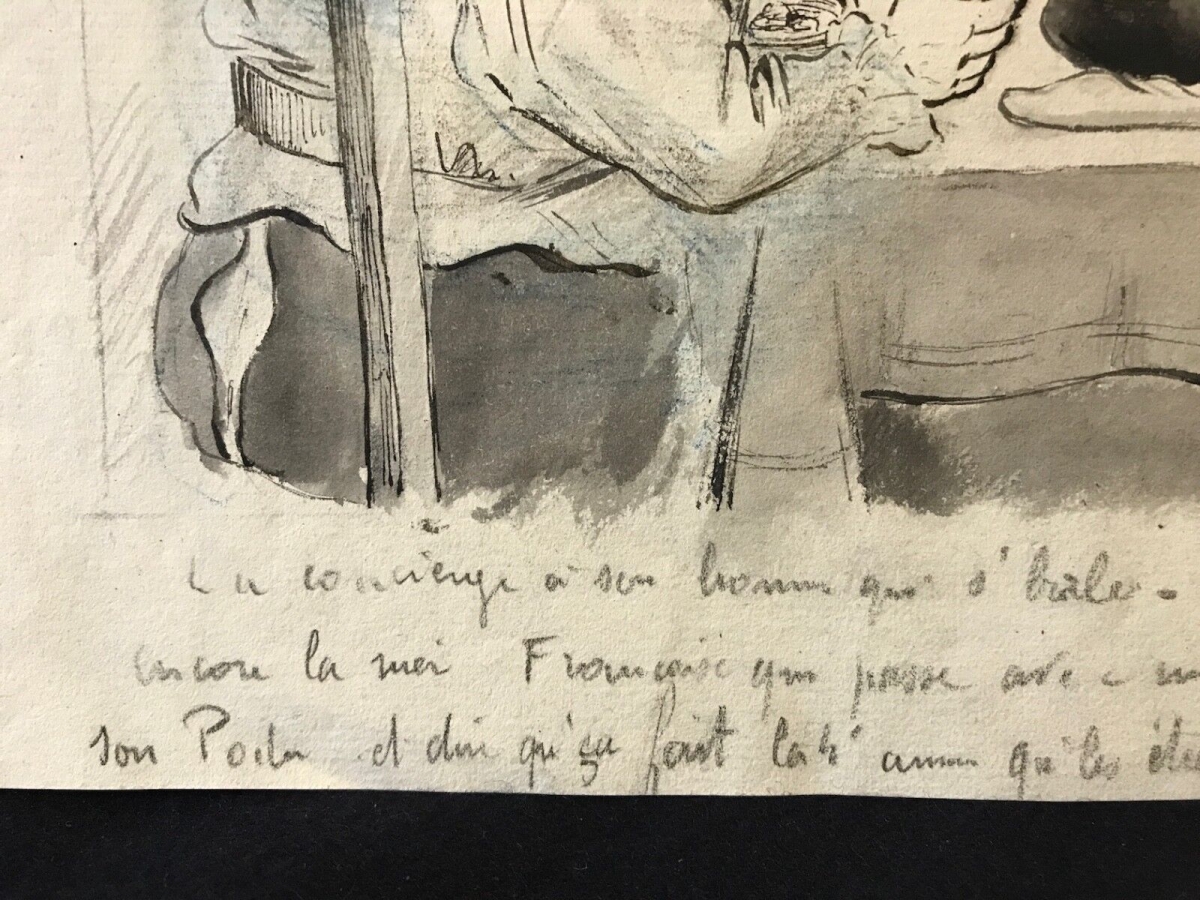 La concierge à son homme qui s'brûle -
encore la mér Françoise qui passe avec
son Poilu et dire qu'ça fait la 4' année qu'les